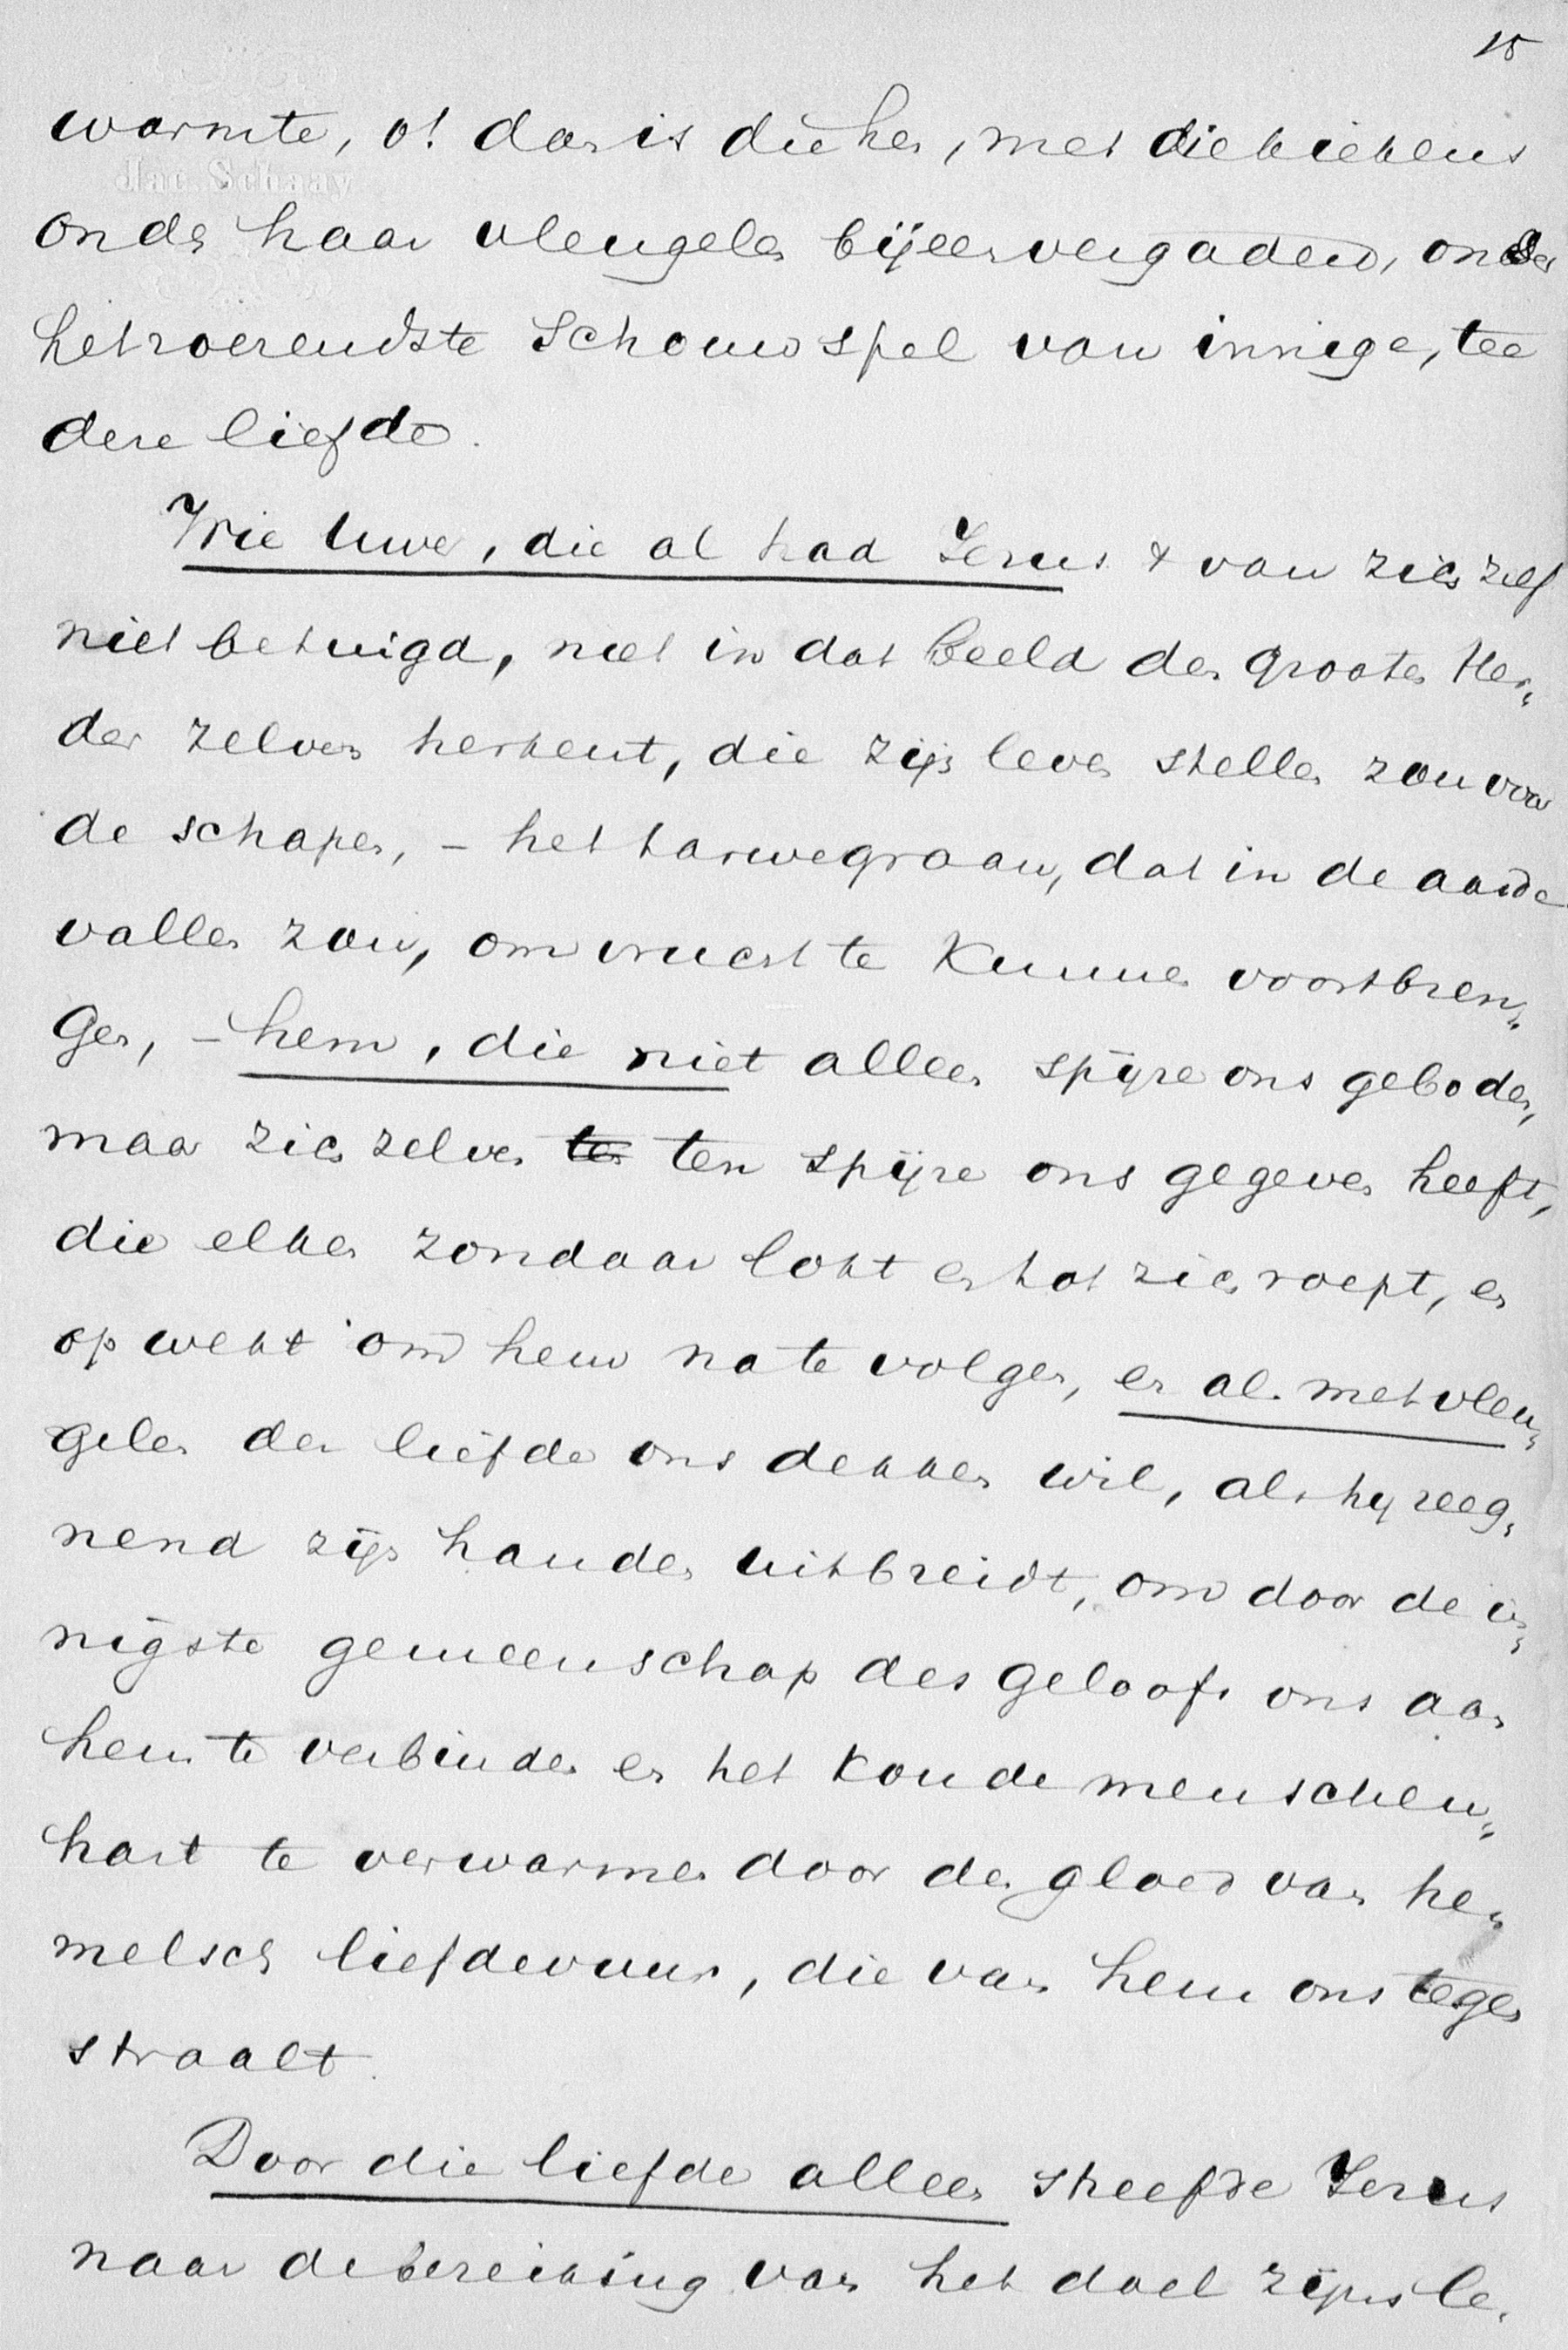 15
Jac. Schaay
warmte, o! dan is die hen, met die kiekens
onder haar vleugelen bijeenvergaderd, ons
het roerendste schouwspel van innige, tee
dere liefde.
Wie Uwer, die al had Jezus 't van zich zelf
niet betuigd, niet in dat beeld den grooten Her„
der zelven herkent, die zijn leven stellen zou voor
de schapen, – het tarwegraan, dat in de aarde
vallen zou, om vrucht te kunnen voortbren„
gen, – hem, die niet alleen spijze ons geboden,
maar zich zelven ten ten spijze ons gegeven heeft,
die elken zondaar lokt en tot zich roept, en
opwekt om hem na te volgen, en als met vleu„
gelen der liefde ons dekken wil, als hij zeeg„
nend zijn handen uitbreidt, om door de in„
nigste gemeenschap des geloofs ons aan
hem te verbinden en het koude menschen„
hart te verwarmen door den gloed van he„
melsch liefdevuur, die van hem ons tegen
straalt.
Door die liefde alleen streefde Jezus
naar de bereiking van het doel zijns le„